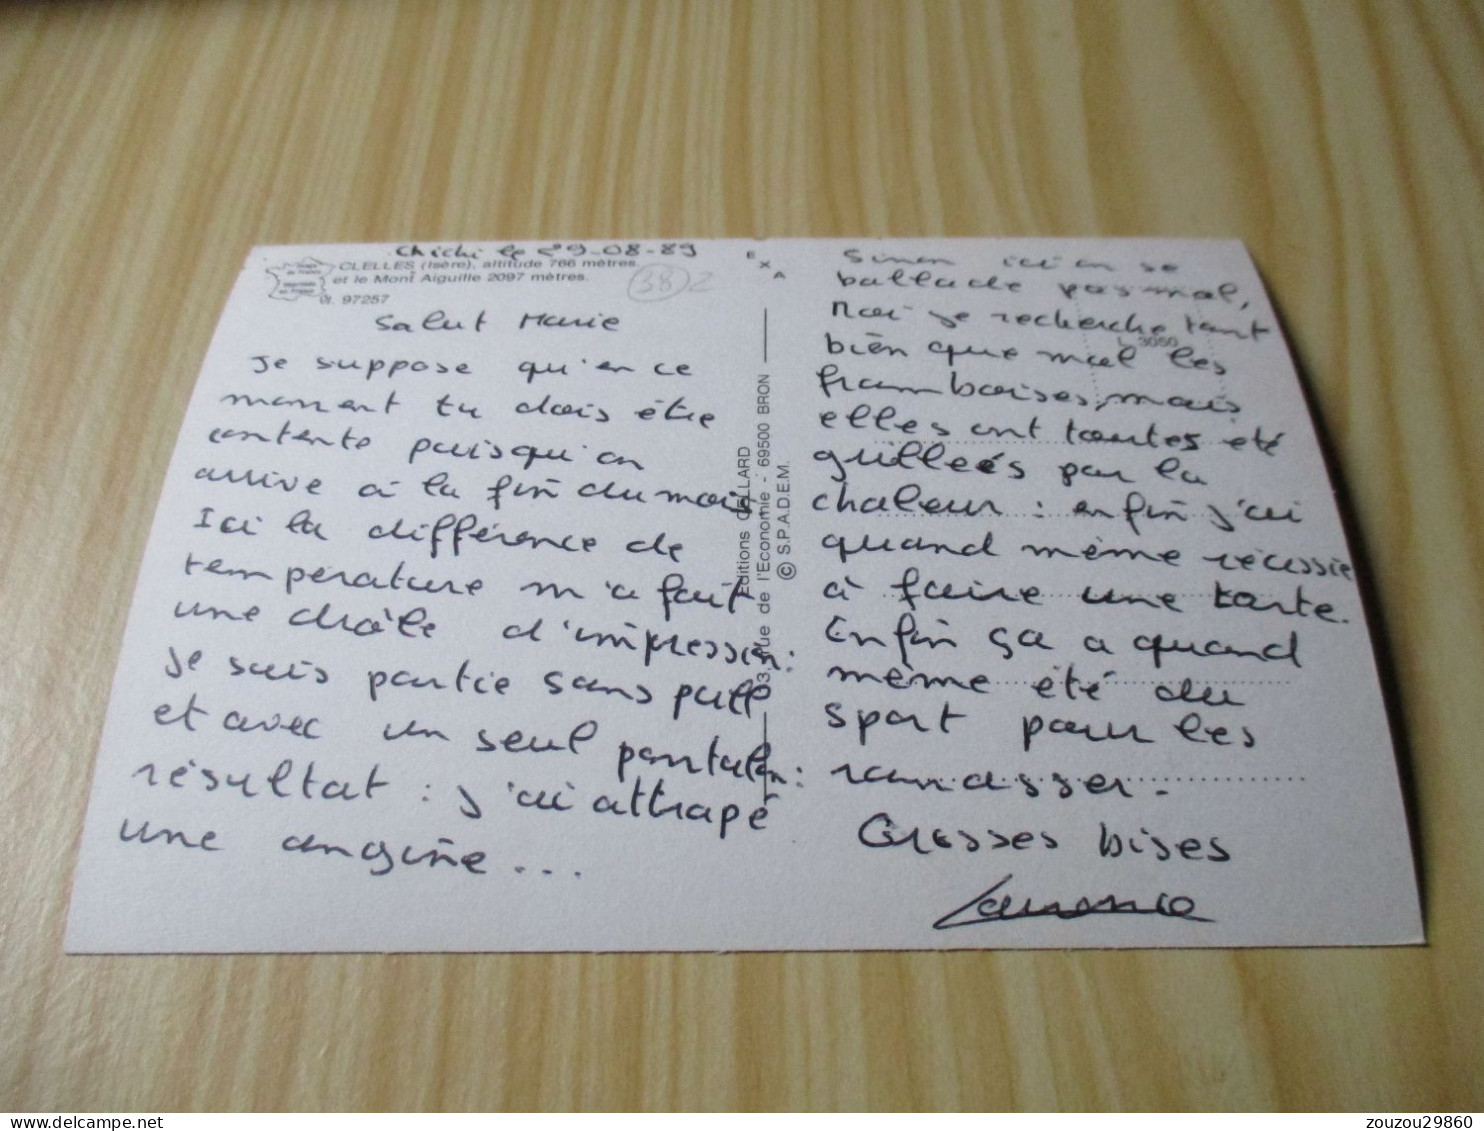 Chichi le 29-08-89
CLELLES (Isère), altitude 766 mètres
et le Mont Aiguille 2097 mètres.
38 2
Cl. 97257
Salut Marie
Je suppose qu'en ce
moment tu dois être
contente puisqu'on
arrive à la fin du mois,
Ici la différence de
température m'a fait
une drôle d'impression:
je suis partie sans pull
et avec un seul pantalon:
résultat : j'ai attrapé
une angine...
EXA
Editions CELLARD
3, Rue de l'Economie - 69500 BRON
© S.P.A.D.E.M.
L 3050
Sinon ici on se
ballade pas mal,
Moi je recherche tant
bien que mal les
framboises, mais
elles ont toutes été
grilleés par la
chaleur : enfin j'ai
quand même réussie
à faire une tarte.
Enfin ça a quand
même été du
sport pour les
ramasser.
Grosses bises
Laurence
zouzou29860